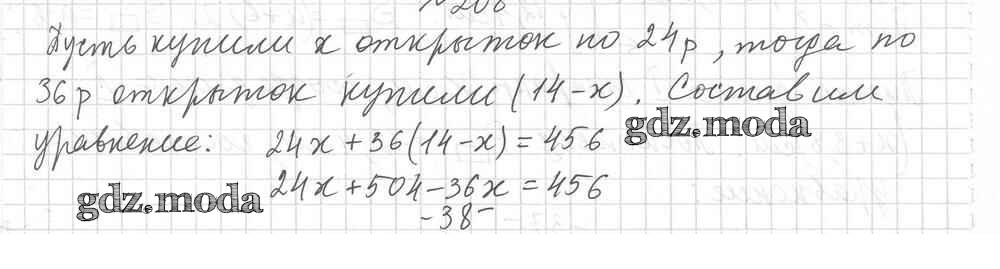 № 208
Пусть купили x открыток по 24р, тогда по
36р открыток купили (14-x). Составим
уравнение: 24x+36(14-x)=456
gdz.moda
24x+504-36x=456
gdz.moda
-38-